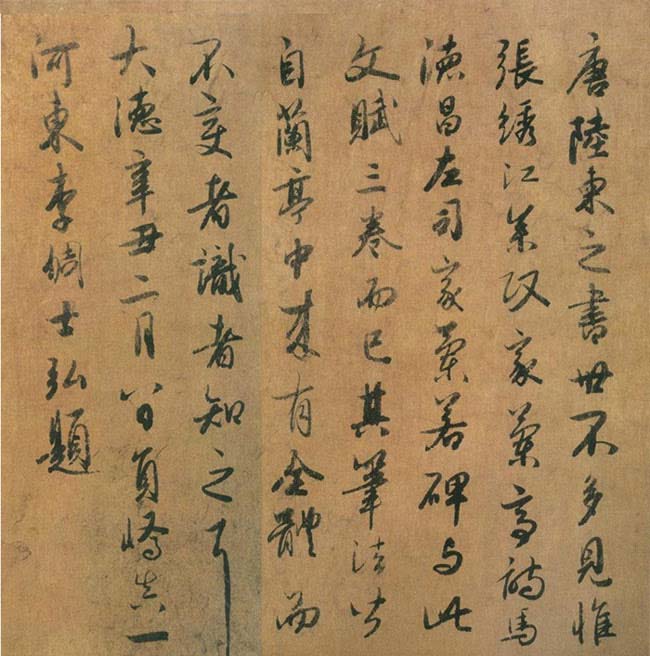 唐陸柬之書世不多見惟
張綉江參政家蘭亭詩馬
德昌左司家蘭若碑与此
文賦三卷而已其筆法皆
自蘭亭中来有全體而
不變者識者知之耳
大德辛丑二月八日員嶠真一
河東李倜士弘題